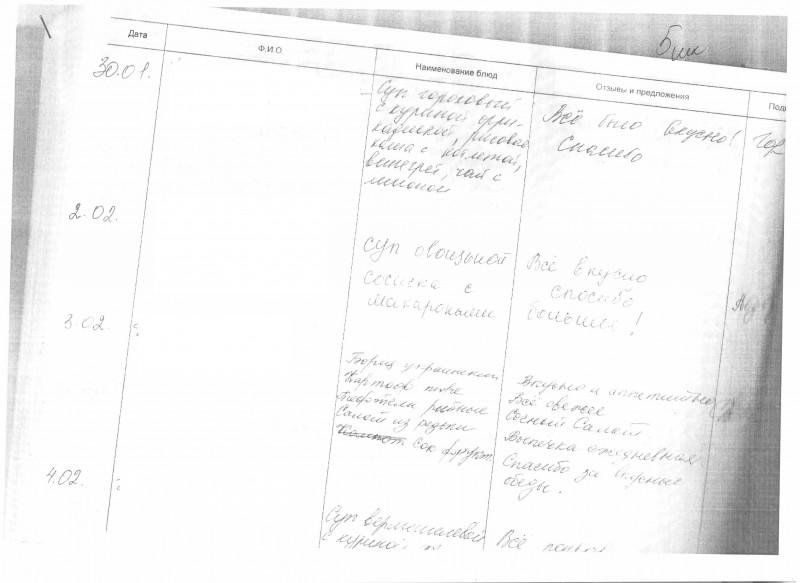 Дата
Ф.И.О.
Наименование блюд
Отзывы и предложения
30.01.
Суп гороховый
с куриной фри-
каделькой, рисовая
каша с котлетой,
винегрет, чай с
лимоном
Всё было вкусно!
Спасибо
2.02.
суп овощьной
сосиска с
макаронами
Всё вкусно
способо
большие!
3.02.
Борщ украинский
Картоф. пюре
Тефтели рыбные
Салат из редьки
Компот Сок фрукт.
Вкусно и аппетитно
Всё свежее
Сочный Салат
Выпечка ежедневная.
Спасибо за вкусные
обеды.
4.02.
Суп вермишелевый
с курицей
Всё